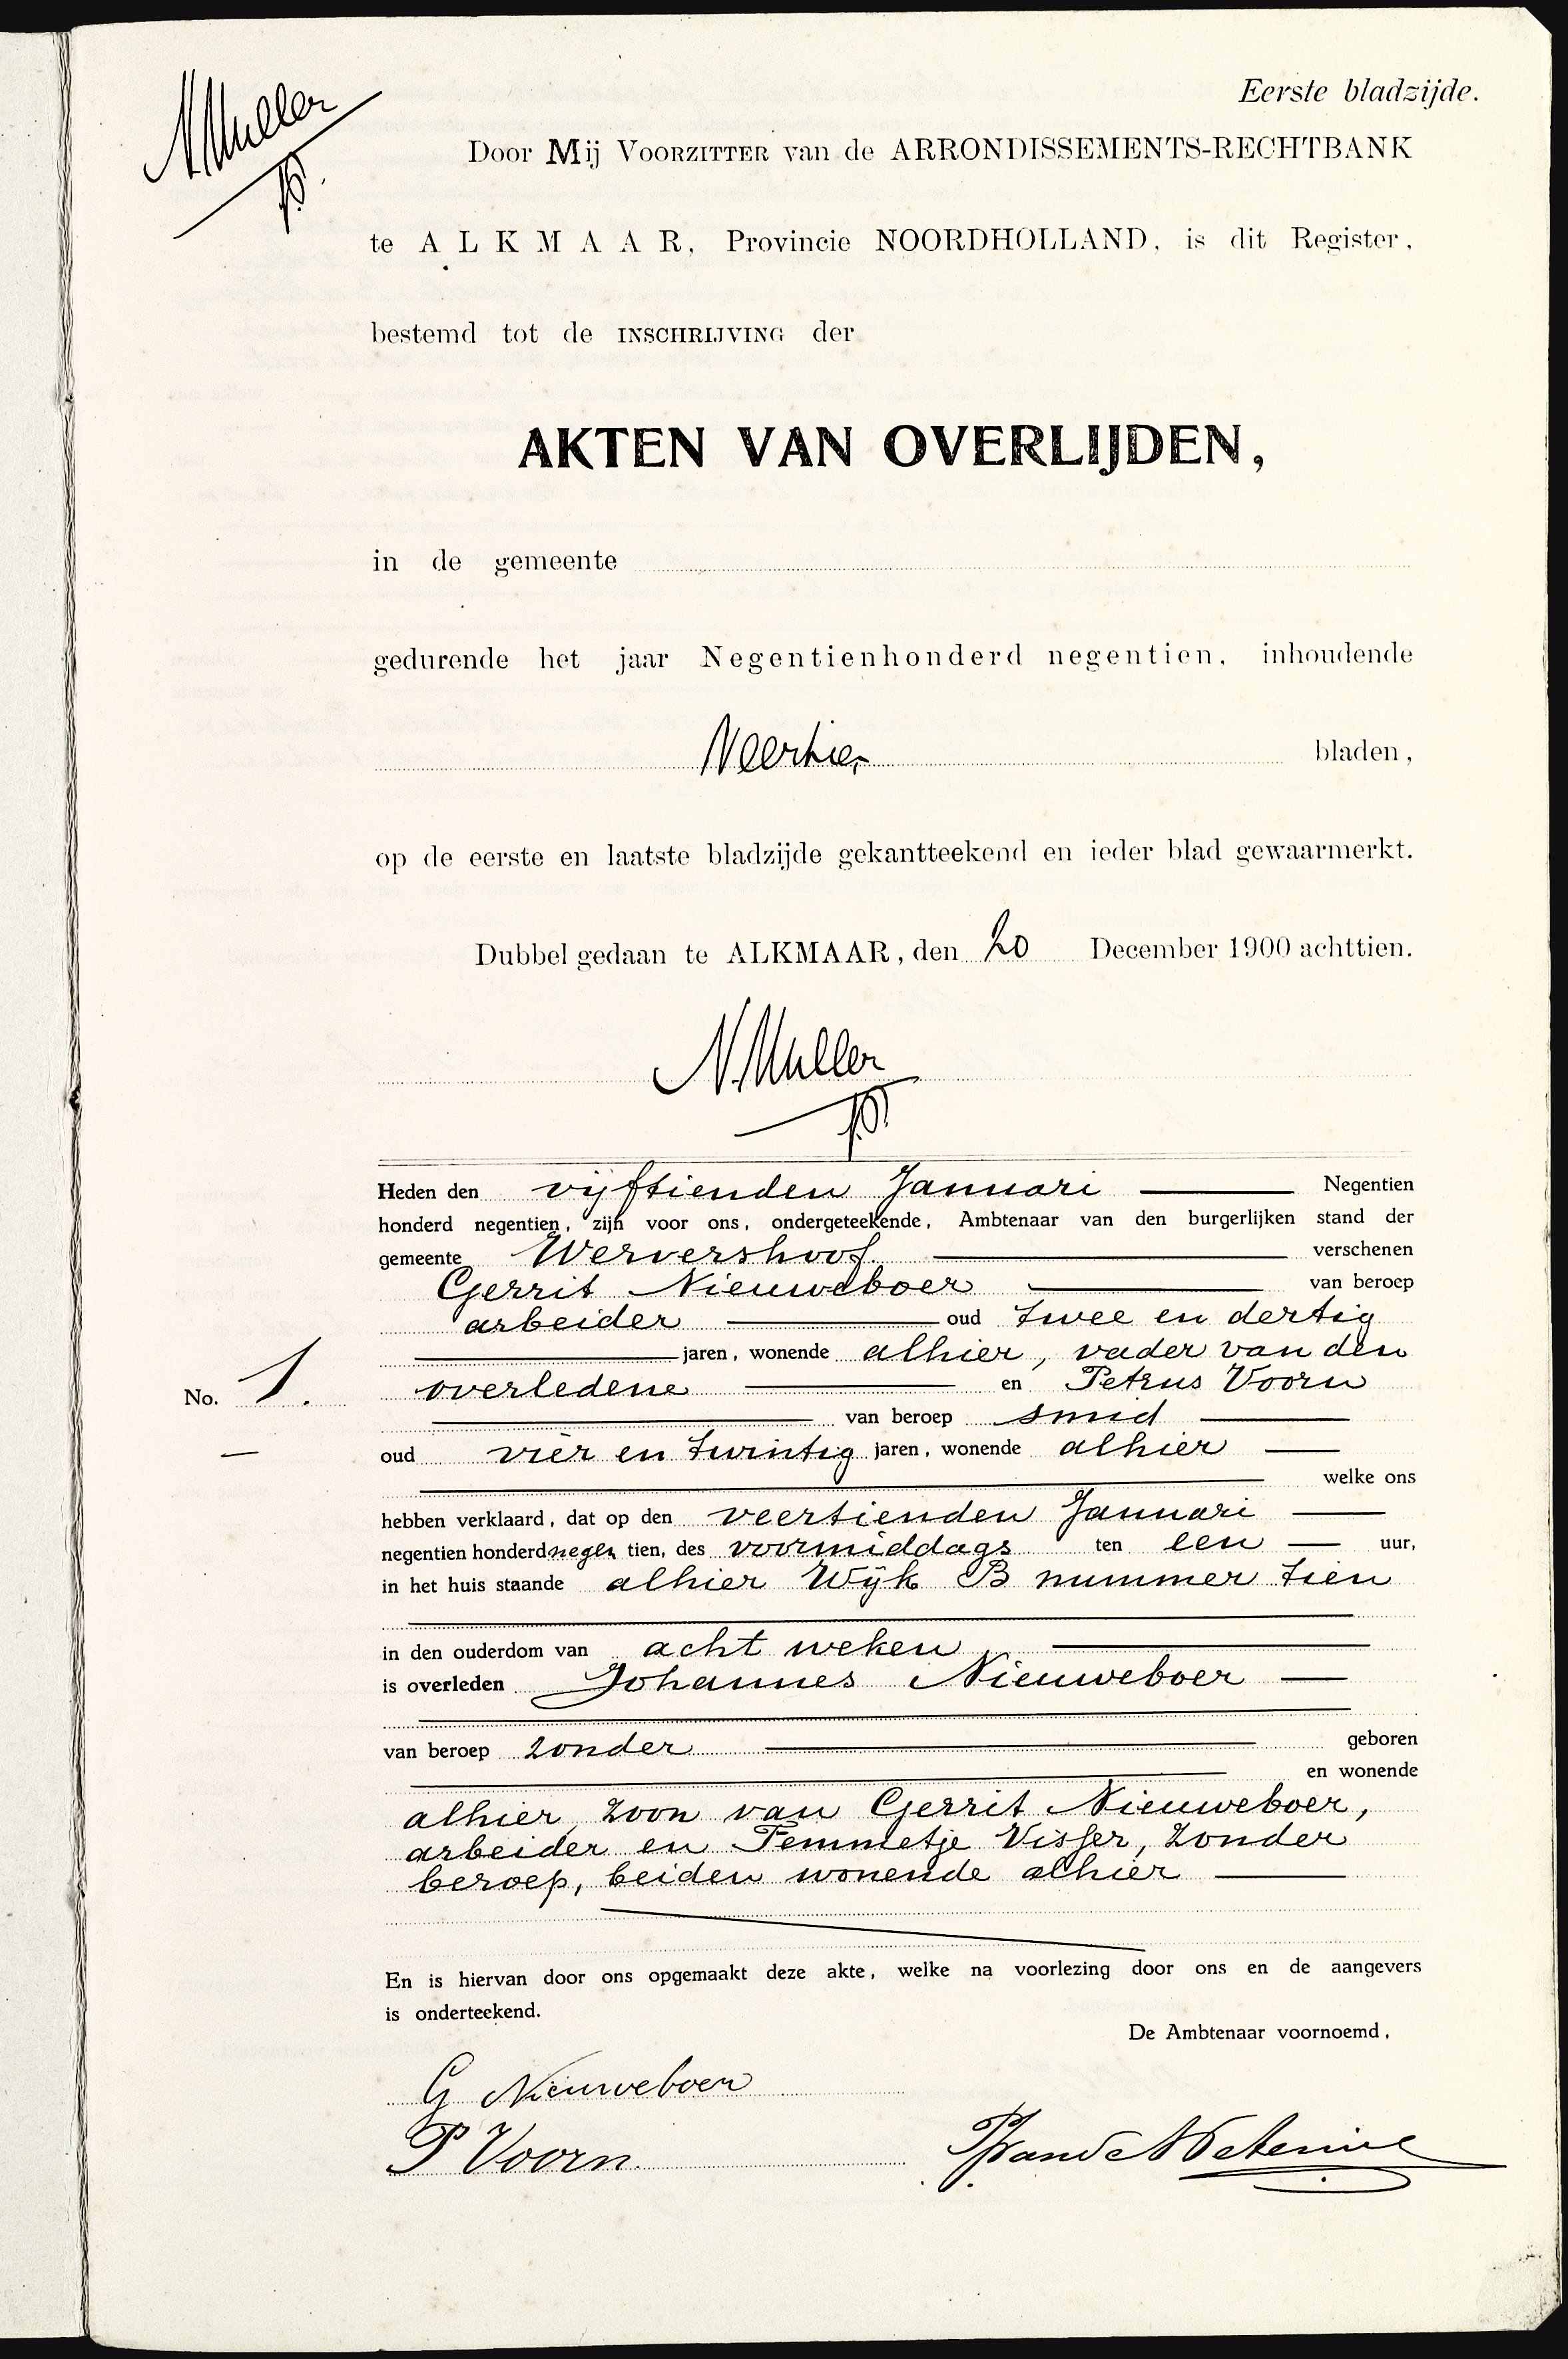 N. Muller
Eerste bladzijde.
Door Mij VOORZITTER van de ARRONDISSEMENTS-RECHTBANK
te ALKMAAR, Provincie NOORDHOLLAND, is dit Register,
bestemd tot de INSCHRIJVING der
AKTEN VAN OVERLIJDEN,
in de gemeente
gedurende het jaar Negentienhonderd negentien, inhoudende
Veertien bladen,
op de eerste en laatste bladzijde gekantteekend en ieder blad gewaarmerkt.
Dubbel gedaan te ALKMAAR, den 20 December 1900 achttien.
N. Muller
Heden den vijftienden Januari Negentien
honderd negentien, zijn voor ons, ondergeteekende, Ambtenaar van den burgerlijken stand der
gemeente Wervershoof. verschenen
Gerrit Nieuweboer van beroep
arbeider oud twee en dertig
jaren, wonende alhier, vader van den
No. 1. overledene en Petrus Voorn
van beroep smid
oud vier en twintig jaren, wonende alhier
welke ons
hebben verklaard, dat op den veertienden Januari
negentien honderd negen tien, des voormiddags ten een uur,
in het huis staande alhier Wijk B nummer tien
in den ouderdom van acht weken
is overleden Johannes Nieuweboer
van beroep zonder geboren
en wonende
alhier, zoon van Gerrit Nieuweboer,
arbeider en Femmetje Visser, zonder
beroep, beiden wonende alhier
En is hiervan door ons opgemaakt deze akte, welke na voorlezing door ons en de aangevers
is onderteekend.
De Ambtenaar voornoemd,
G Nieuweboer
P Voorn